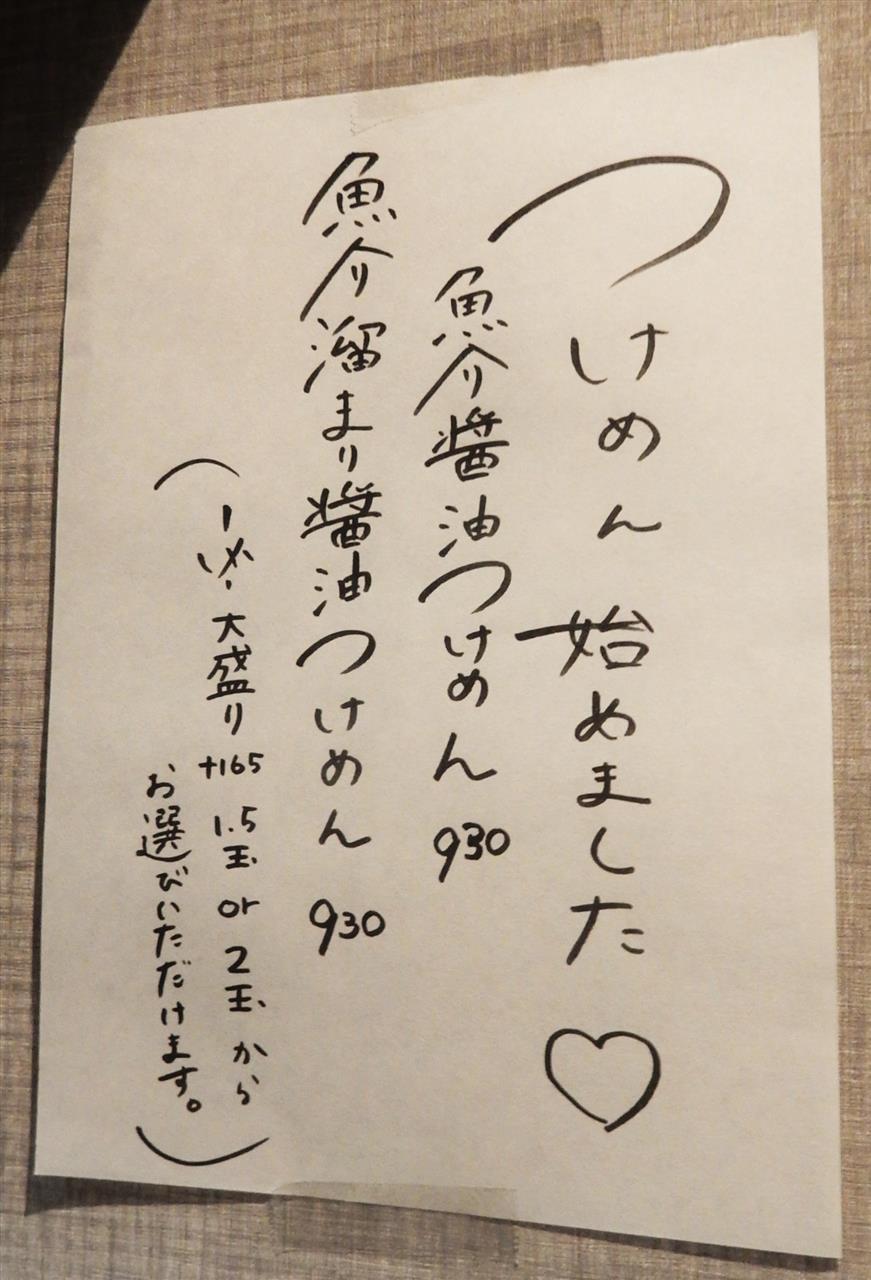 つけめん始めました♡
魚介醤油つけめん 930
魚介溜まり醤油つけめん 930
(大盛り +165 1.5玉 or 2玉 から
お選びいただけます。)